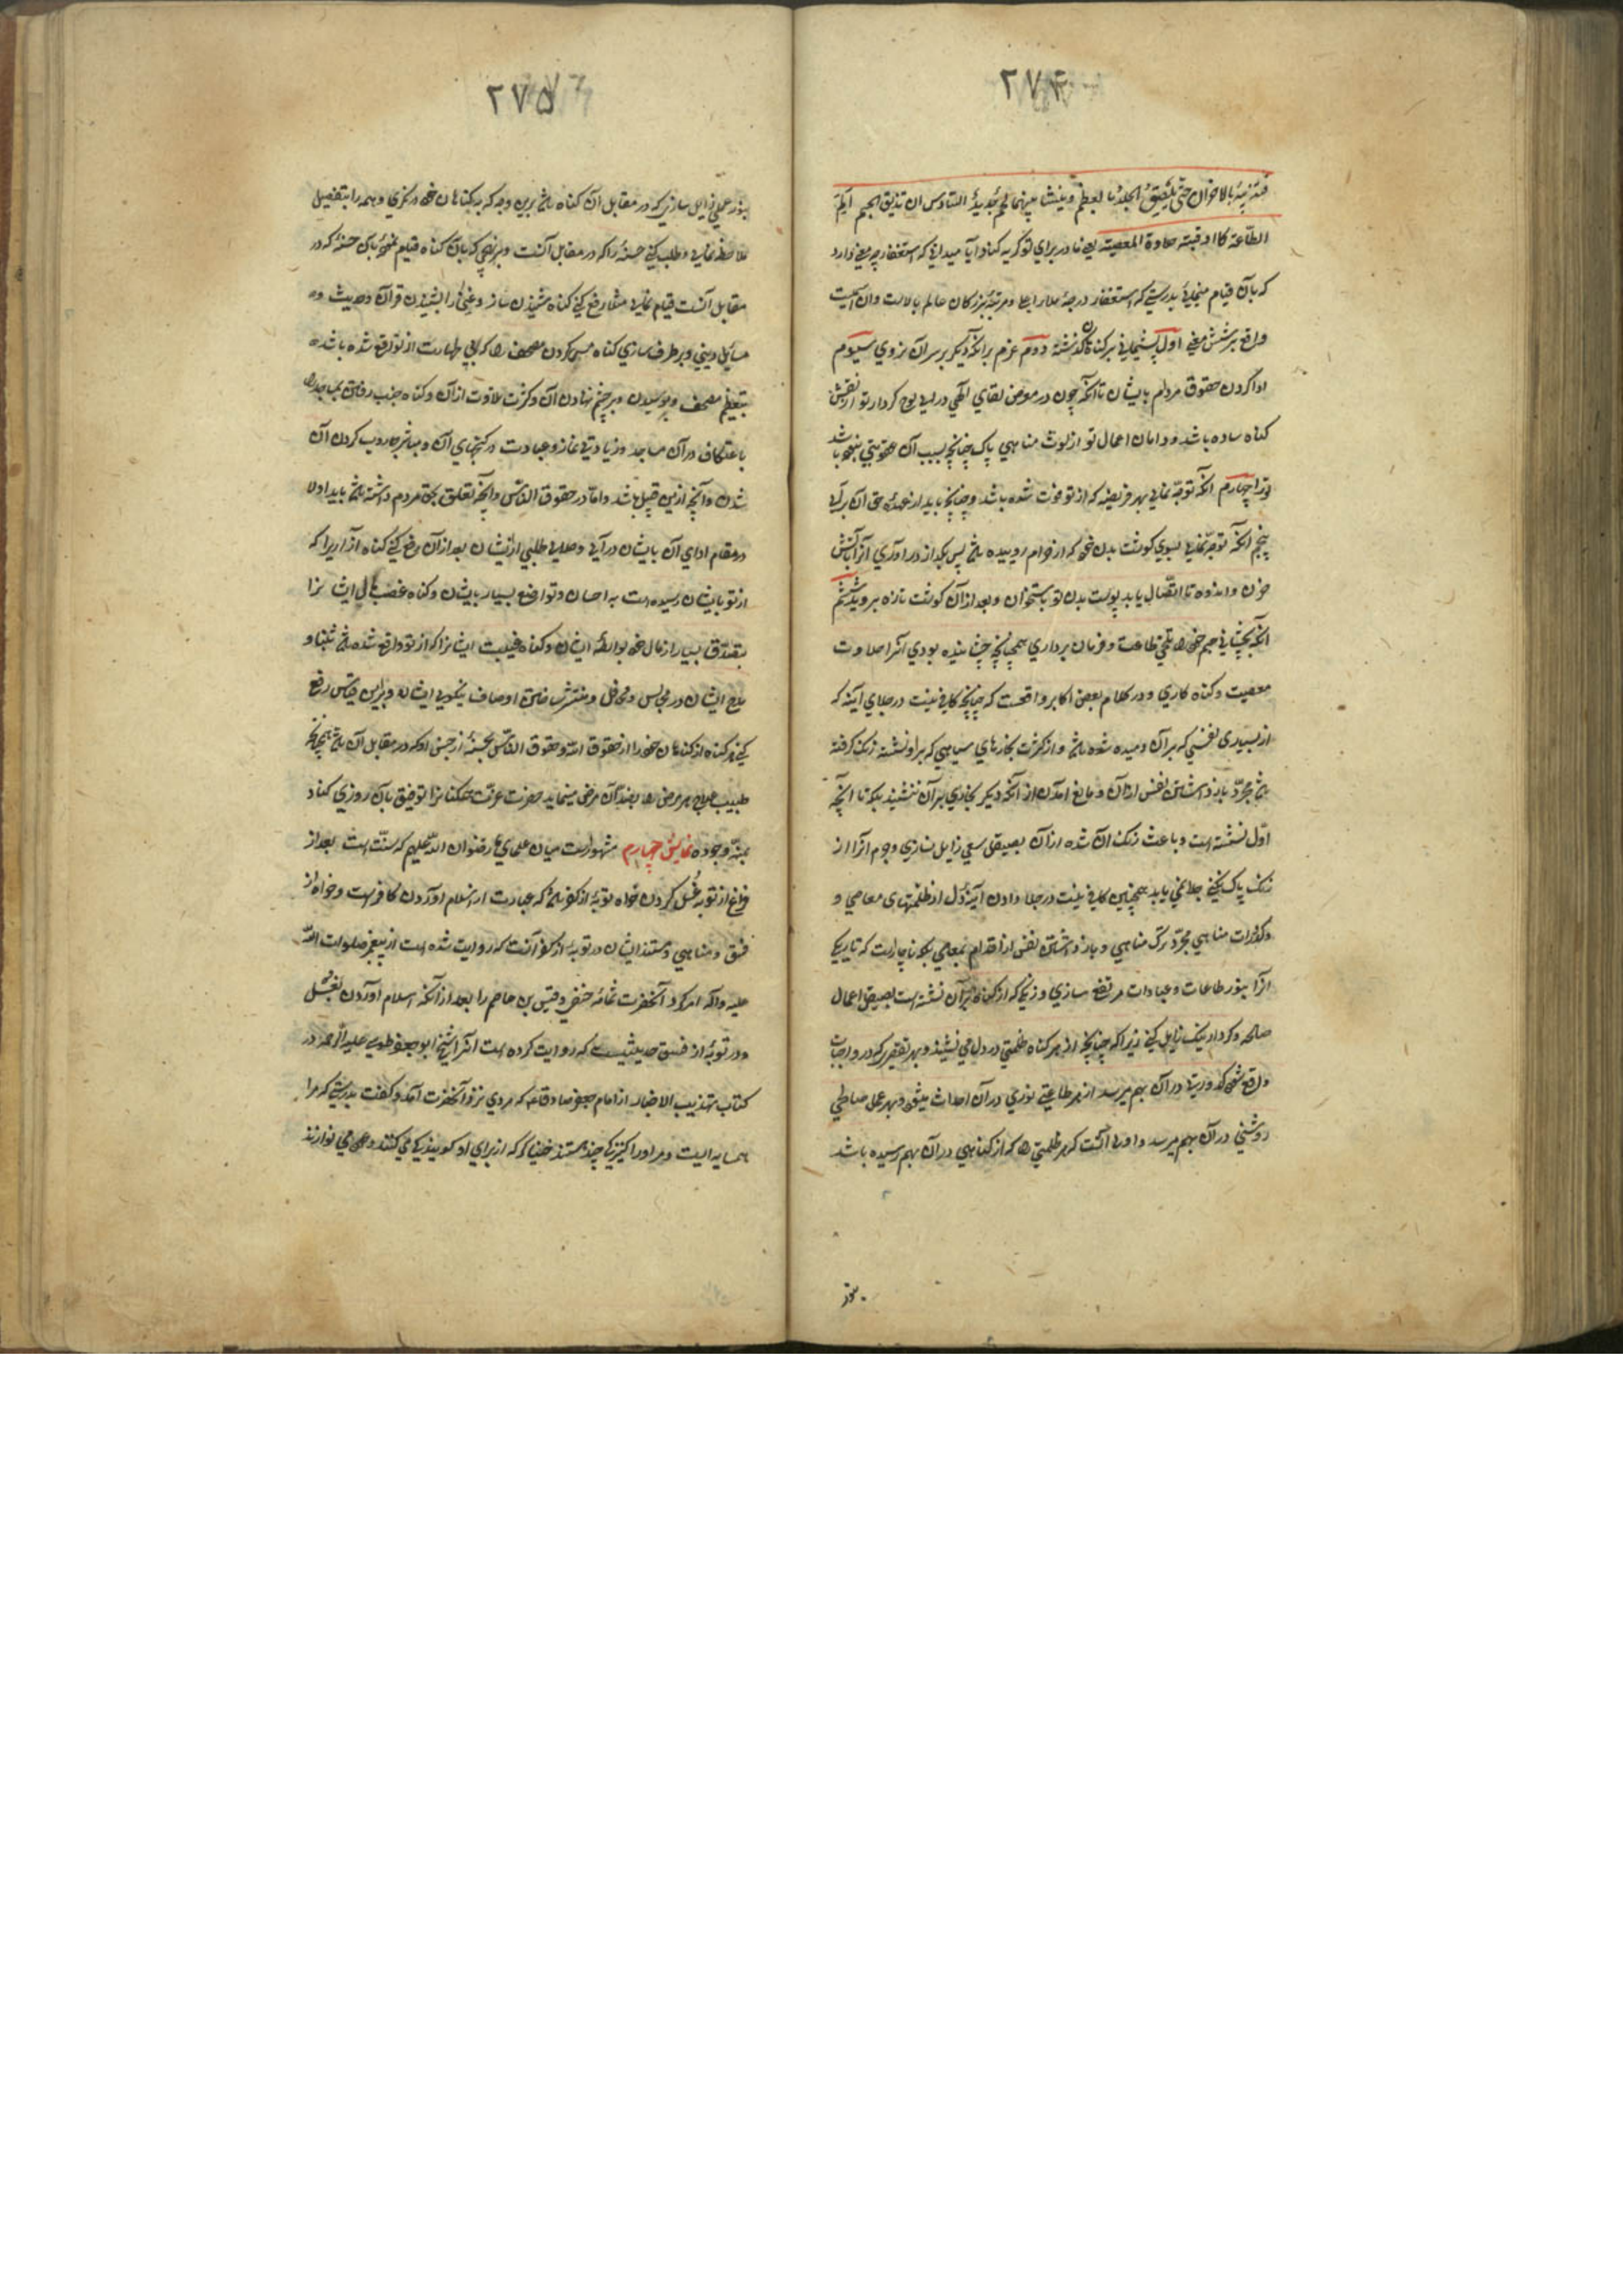 ۲۷۴
فتذیبه بالاحزان حتی یلصق الجلد بالعظم و ینشأ بینهما لحم جدید السادس ان تذیق الجسم الم
الطاعة کما اذقته حلاوة المعصیة یعنی مادر برای تو گریه کناد آیا میدانی که استغفار چه معنی دارد
که بآن قیام مینمایی بدرستی که استغفار درجهٔ ملاء اعلا و مرتبهٔ بزرگان عالم بالاست و آن اسمیست
واقع بر شش معنی اول پشیمانی بر گناهان گذشته دوم عزم بر آنکه دیگر بر سر آن نروی سیوم
ادا کردن حقوق مردم بایشان تا آنکه چون در معرض لقای الهی درآیی لوح کردار تو از نقش
گناه ساده باشد و دامان اعمال تو از لوث مناهی پاک چنانچه بسبب آن عقوبتی نبوده باشد
ترا چهارم آنکه توجه نمایی بهر فریضه که از تو فوت شده باشد و چنانچه باید از عهدهٔ حق آن برآیی
پنجم آنکه توجه نمایی بسوی گوشت بدن خود که از حرام روییده باشد پس بگداز درآوری آنرا بآتش
حزن و اندوه تا اتصال یابد پوست بدن تو باستخوان و بعد از آن گوشت تازه بروید ششم
آنکه بچشانی جسم خود را تلخی طاعت و فرمان برداری همچنانچه چشانیده بودی آنرا حلاوت
معصیت و گناه کاری و در کلام بعض اکابر واقعست که چنانچه کافی نیست در جلای آینه که
از بسیاری نفسی که بر آن دمیده شده باشد و از کثرت بخارهای سیاهی که بر او نشسته زنک گرفته
باشد مجرد باز داشتن نفس از آن و مانع آمدن از آنکه دیگر بخاری بر آن ننشیند بلکه تا آنچه
اول نشسته است و باعث زنک آن شده از آن بصیقل سعی زایل نسازی و جرم آنرا از
زنک پاک نکنی جلا نمی یابد همچنین کافی نیست در جلا دادن آینهٔ دل از ظلمتهای معاصی و
کدورات مناهی مجرد ترک مناهی و باز داشتن نفس از اقدام بمعاصی بلکه ناچارست که تاریکی
آنرا بنور طاعات و عبادات مرتفع سازی و زنکی که از گناه بر آن نشسته است بصیقل اعمال
صالحه و کردار نیک زایل کنی زیرا که چنانچه از هر گناه ظلمتی در دل می نشیند و بهر تقصیر که در واجبات
واقع شود کدورتی در آن بهم میرسد از هر طاعتی نوری در آن احداث میشود و بهر عمل صالحی
روشنی در آن بهم میرسد و اولی آنست که هر ظلمتی را که از گناهی در آن بهم رسیده باشد
بنور
۲۷۵
بنور عملی زایل سازی که در مقابل آن گناه باشد برین وجه که بگناهان خود درنگری و همه را بتفصیل
ملاحظه نمایی و طلب کنی حسنهٔ را که در مقابل آنست و بر نهجی که بآن گناه قیام نموده بآن حسنه که در
مقابل آنست قیام نمایی مثلا رفع کنی گناه شنیدن ساز و غنا را بشنیدن قرآن و حدیث و
مسائل دینی و برطرف سازی گناه مس کردن مصحف را که بی طهارت از تو واقع شده باشد
بتعظیم مصحف و بوسیدن و بر چشم نهادن آن و کثرت تلاوت از آن و گناه جنب رفتن بمساجد را
باعتکاف در آن مساجد و زیادتی نماز و عبادت در کنجهای آن و مباشر جاروب کردن آن
شدن و آنچه ازین قبیل باشد و اما در حقوق الناس و آنچه تعلق بحق مردم داشته باشد باید اولا
در مقام ادای آن بایشان درآیی و حلالی طلبی ازیشان بعد از آن رفع کنی گناه آزاریرا که
از تو بایشان رسیده است به احسان و تواضع بسیار بایشان و گناه غصب مال ایشانرا
بتصدق بسیار از مال خود بواسطهٔ ایشان و گناه غیبت ایشانرا که از تو واقع شده باشد بثنا و
مدح ایشان در مجالس و محافل و منتشر ساختن اوصاف نیکویی ایشان و برین قیاس رفع
کنی هر گناه از گناهان خود را از حقوق الله و حقوق الناس بحسنهٔ از جنس او که در مقابل آن باشد همچنانکه
طبیب علاج هر مرض را بضد آن مرض مینماید حضرت عزت همکنانرا توفیق بآن روزی کناد
بمنه وجوده نمایش چهارم مشهورست میان علمای ما رضوان الله علیهم که سنت است بعد از
فراغ از توبه غسل کردن خواه توبه از کفر باشد که عبارت از اسلام آوردن کافرست و خواه از
فسق و مناهی و مستند ایشان در توبه از کفر آنست که روایت شده است از پیغمبر صلوات الله
علیه واله امر کرد آنحضرت ثمامه حنفی و قیس بن عاصم را بعد از آنکه اسلام آوردن بغسل
و در توبه از فسق حدیثیست که روایت کرده است آنرا شیخ ابو جعفر طوسی علیه الرحمه در
کتاب تهذیب الاخبار از امام جعفر صادق علیه که مردی نزد آنحضرت آمد و گفت بدرستی که مرا
همسایه ایست و مر او را کنیزکی چند هستند خنیاگر که از برای او گویندگی می کنند و عود می نوازند